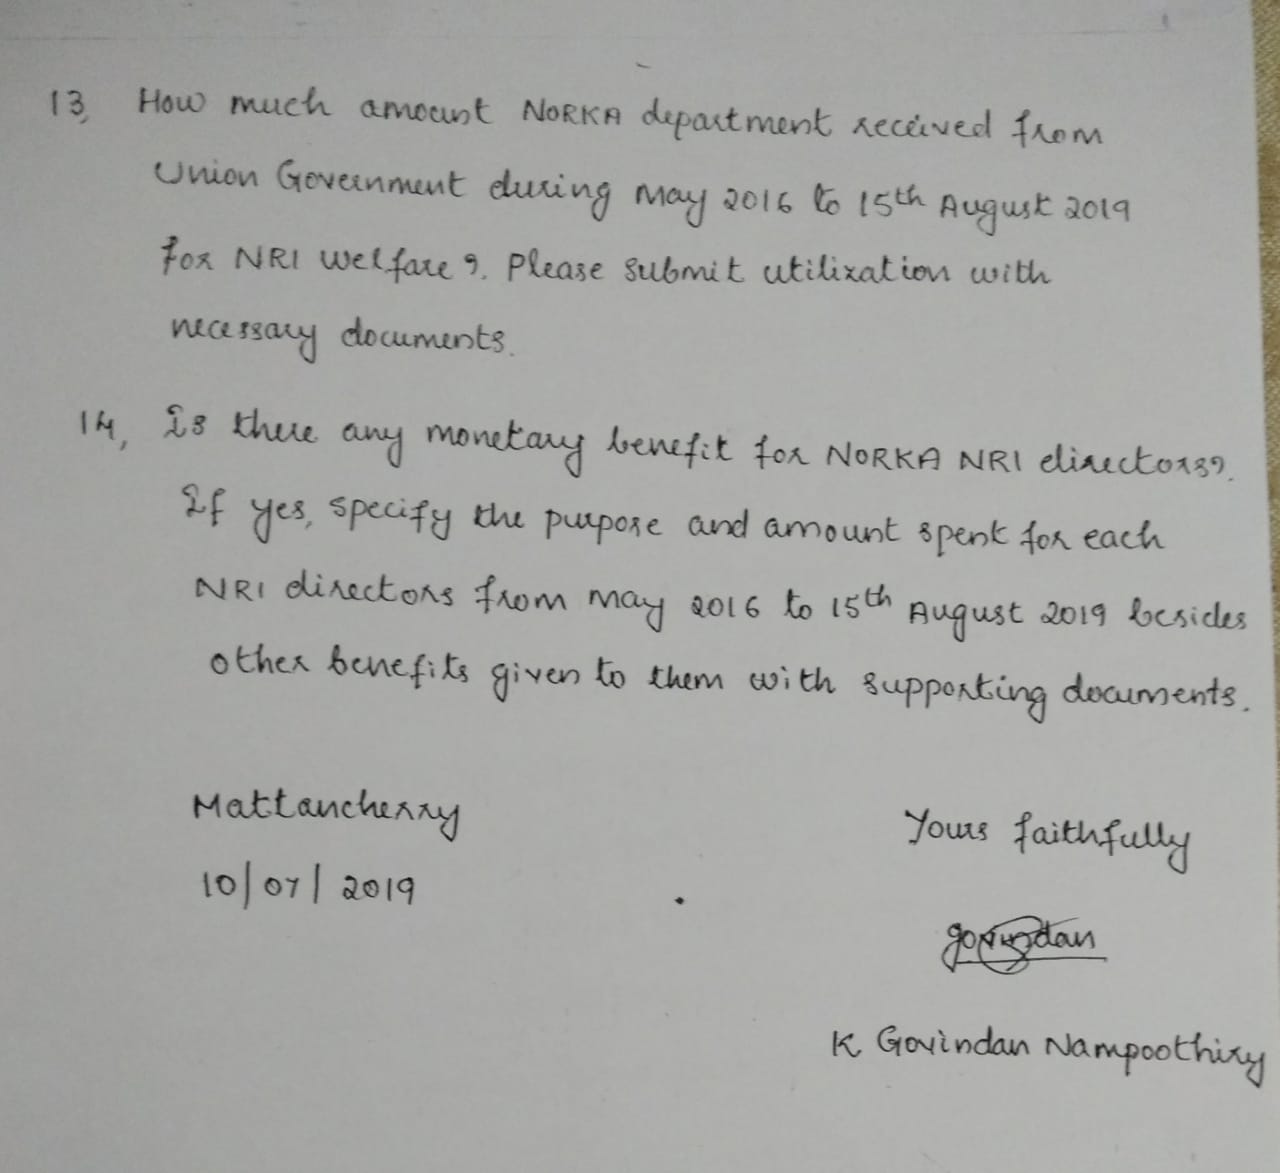 13, How much amount NORKA department received from
Union Government during May 2016 to 15th August 2019
for NRI welfare?. Please submit utilization with
necessary documents.
14, Is there any monetary benefit for NORKA NRI directors?.
If yes, specify the purpose and amount spent for each
NRI directors from may 2016 to 15th August 2019 besides
other benefits given to them with supporting documents.
Mattancherry
Yours faithfully
10/07/2019
govindan
K Govindan Nampoothiry